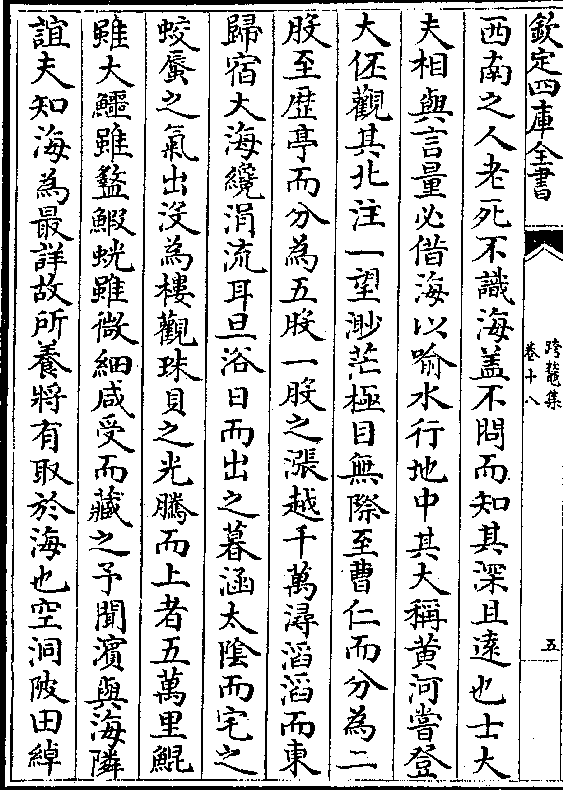 欽定四庫全書
跨鼇集
卷十八
五
西南之人老死不識海盖不問而知其深且遠也士大
夫相與言量必借海以喻水行地中其大稱黄河嘗登
大伾觀其北注一望渺茫極目無際至曹仁而分為二
股至歴亭而分為五股一股之漲越千萬潯滔滔而東
歸宿大海纔涓流耳旦浴日而出之暮涵太陰而宅之
蛟蜃之氣出沒為樓觀珠貝之光騰而上者五萬里鯤
雖大鱷雖螯鰕蛻雖微細咸受而藏之予聞濱與海隣
誼夫知海為最詳故所養將有取於海也空洞陂田綽